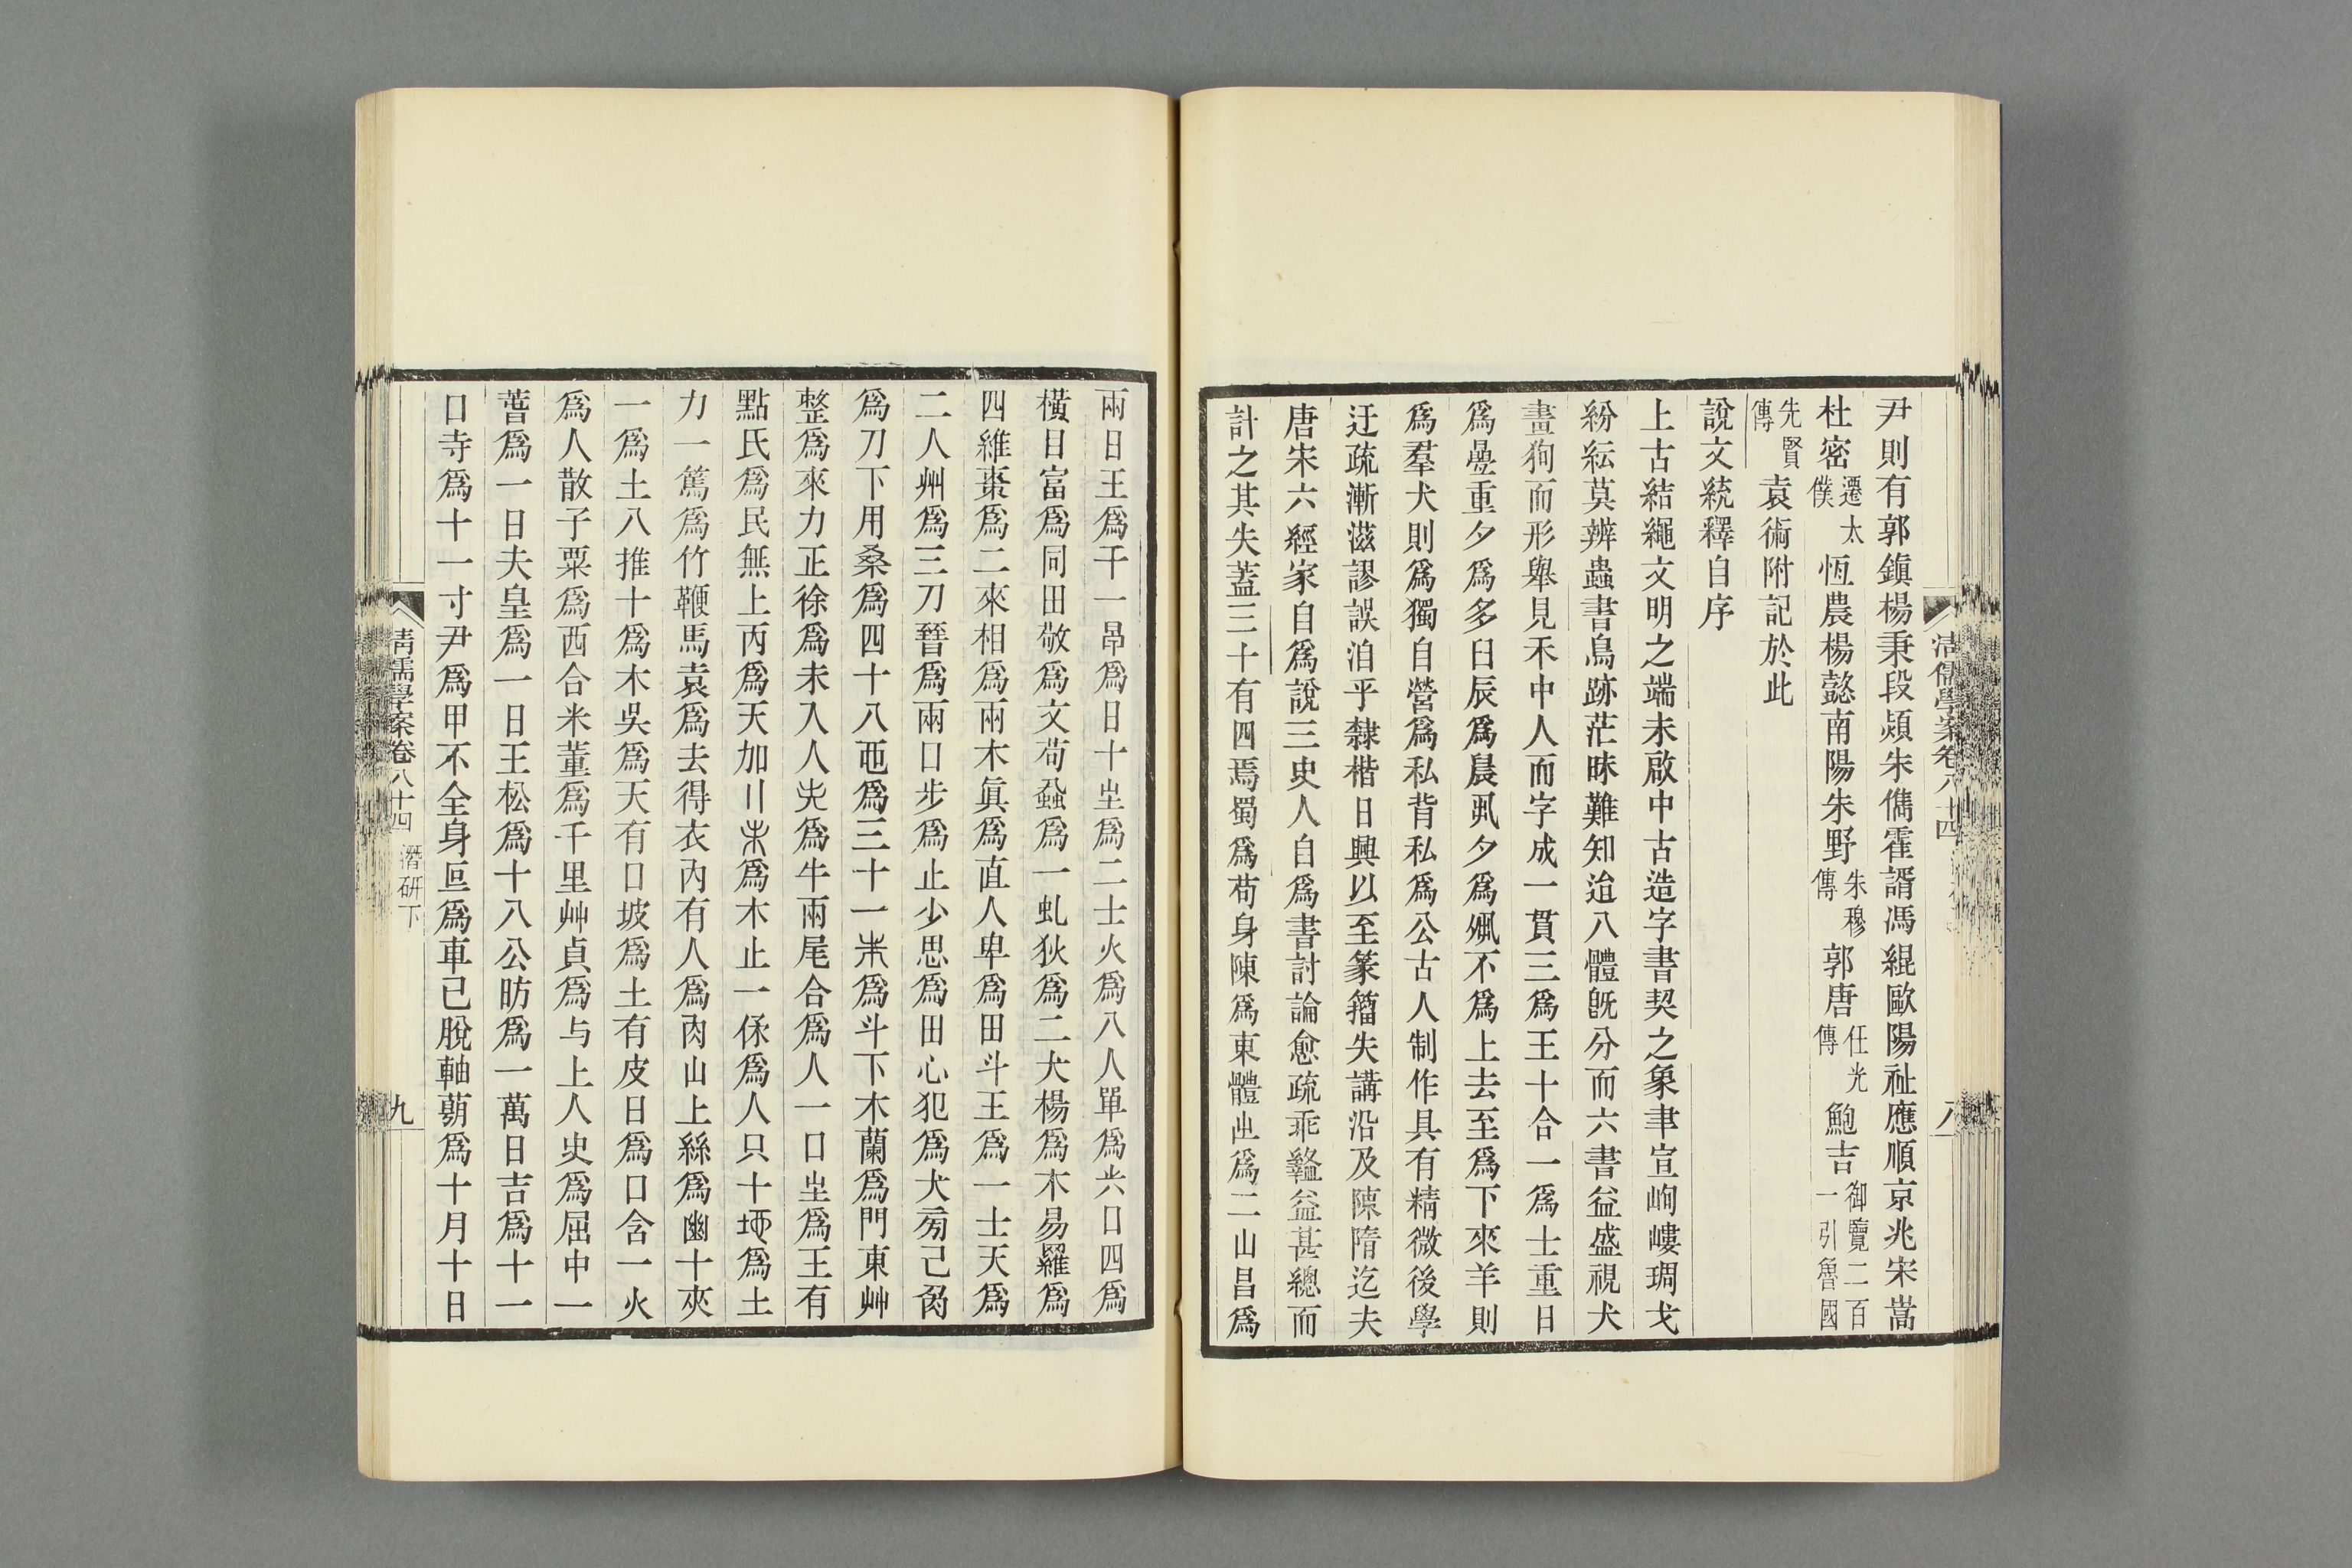 尹則有郭鎮楊秉段熲朱儁霍諝馮緄歐陽祉應順京兆宋嵩
杜密遷太僕恆農楊懿南陽朱野朱穆傳郭唐任光傳鮑吉御覽二百一引魯國
先賢傳袁術附記於此
說文統釋自序
上古結繩文明之端未啟中古造字書契之象聿宣岣嶁琱戈
紛紜莫辨蟲書鳥跡茫昧難知迨八體旣分而六書益盛視犬
畫狗而形舉見禾中人而字成一貫三爲王十合一爲士重日
爲曡重夕爲多臼辰爲晨丮夕爲夙不爲上去至爲下來羊則
爲羣犬則爲獨自營爲私背私爲公古人制作具有精微後學
迂疏漸滋謬誤洎乎隸楷日興以至篆籀失講沿及陳隋迄夫
唐宋六經家自爲說三史人自爲書討論愈疏乖盭益甚總而
計之其失蓋三十有四焉蜀爲苟身陳爲東體出爲二山昌爲
兩日王爲干一昂爲日十㞷爲二士火爲八人單爲𠫤口四爲
橫日富爲同田敬爲文苟蝨爲一虬狄爲二犬楊爲木易羅爲
四維棗爲二來相爲兩木眞爲直人卑爲田斗王爲一士天爲
二人州爲三刀晉爲兩口步爲止少思爲田心犯爲犬㔾
爲刀下用桑爲四十八䒶爲三十一爲斗下木蘭爲門東艸
整爲來力正徐爲未入人爲牛兩尾合爲人一口㞷爲王有
點氏爲民無上丙爲天加丨丨爲木止一保爲人只十爲土
力一篤爲竹鞭馬袁爲去得衣內有人爲肉山上絲爲幽十夾
一爲土八推十爲木吳爲天有口坡爲土有皮日爲口含一火
爲人散子粟爲西合米董爲千里艸貞爲与上人史爲屈中一
爲一日夫皇爲一日王松爲十八公昉爲一萬日吉爲十一
口寺爲十一寸尹爲甲不全身亘爲車已脫軸萠爲十月十日
清儒學案卷八十四
八
清儒學案卷八十四 潛研下
九